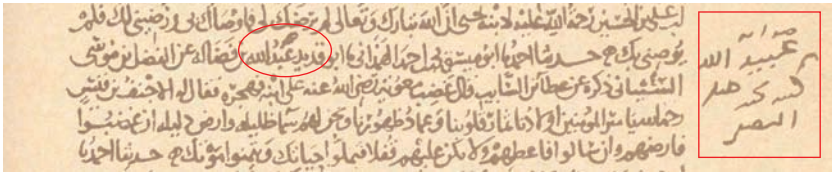 علي بن الحسين رحمة الله عليه لابنه يحيى ان الله تبارك وتعالى لم يرضك لي فاوصاك بي ورضيني لك فلم
يوصني بك حدثنا احمد نا ابو احمد الهمداني نا ابو قديد عبيد الله بن فضالة عن الفضل بن موسى
الشيباني ذكره عن عطا بن السايب قال غضب معوية رضي الله عنه على ابنه فهجره فقال له الاحنف بن قيس
يا امير المومنين اولادنا ثمار قلوبنا وعماد ظهورنا ونحن لهم سما ظليله وارض ذليله ان غضبوا
فارضهم وان سالوا فاعطهم ولا تكن عليهم قفلا فيملوا حياتك ويتمنوا موتك حدثنا احمد نا
عبيد الله